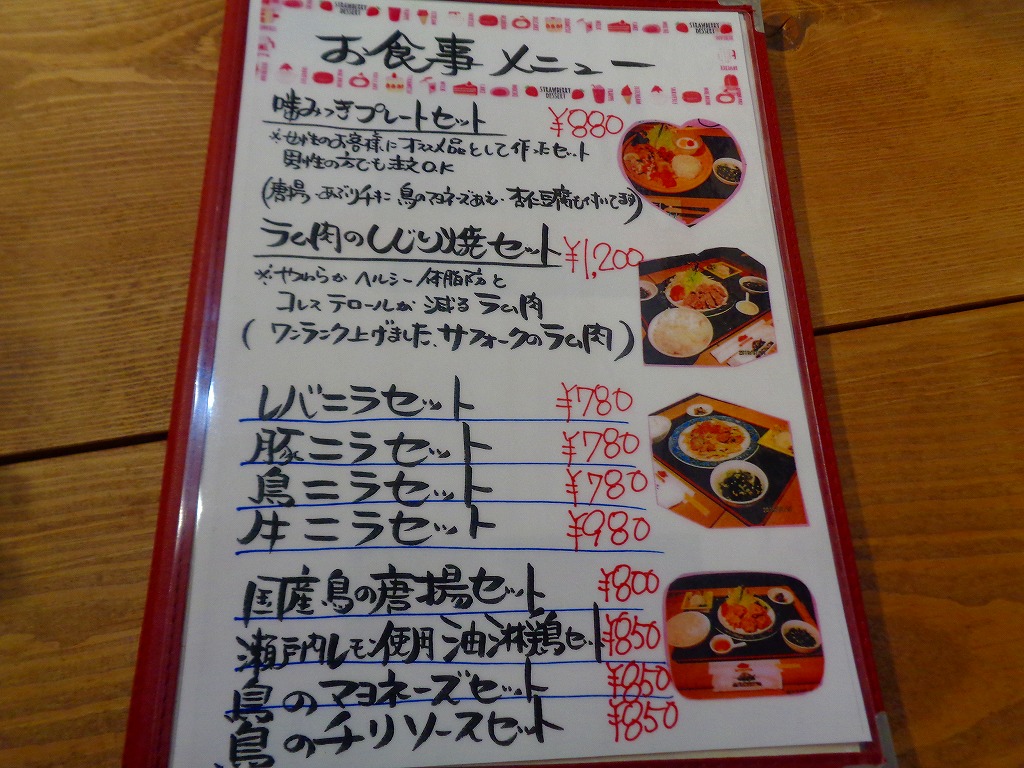 お食事メニュー
噛みつきプレートセット ¥880
※女性のお客様にオススメ品として作ったセット
男性の方でも注文O.K
(唐揚・あぶりチキン 鳥のマヨネーズあえ・杏仁豆腐も付いてます)
ラム肉のしじり焼セット ¥1,200
※やわらか ヘルシー 体脂肪と
コレステロールが減るラム肉
(ワンランク上げました、サフォークのラム肉)
レバニラセット ¥780
豚ニラセット ¥780
鳥ニラセット ¥780
牛ニラセット ¥980
国産鳥の唐揚セット ¥800
瀬戸内レモン使用油淋鶏セット ¥850
鳥のマヨネーズセット ¥850
鳥のチリソースセット ¥850
STRAWBERRY DESSERT